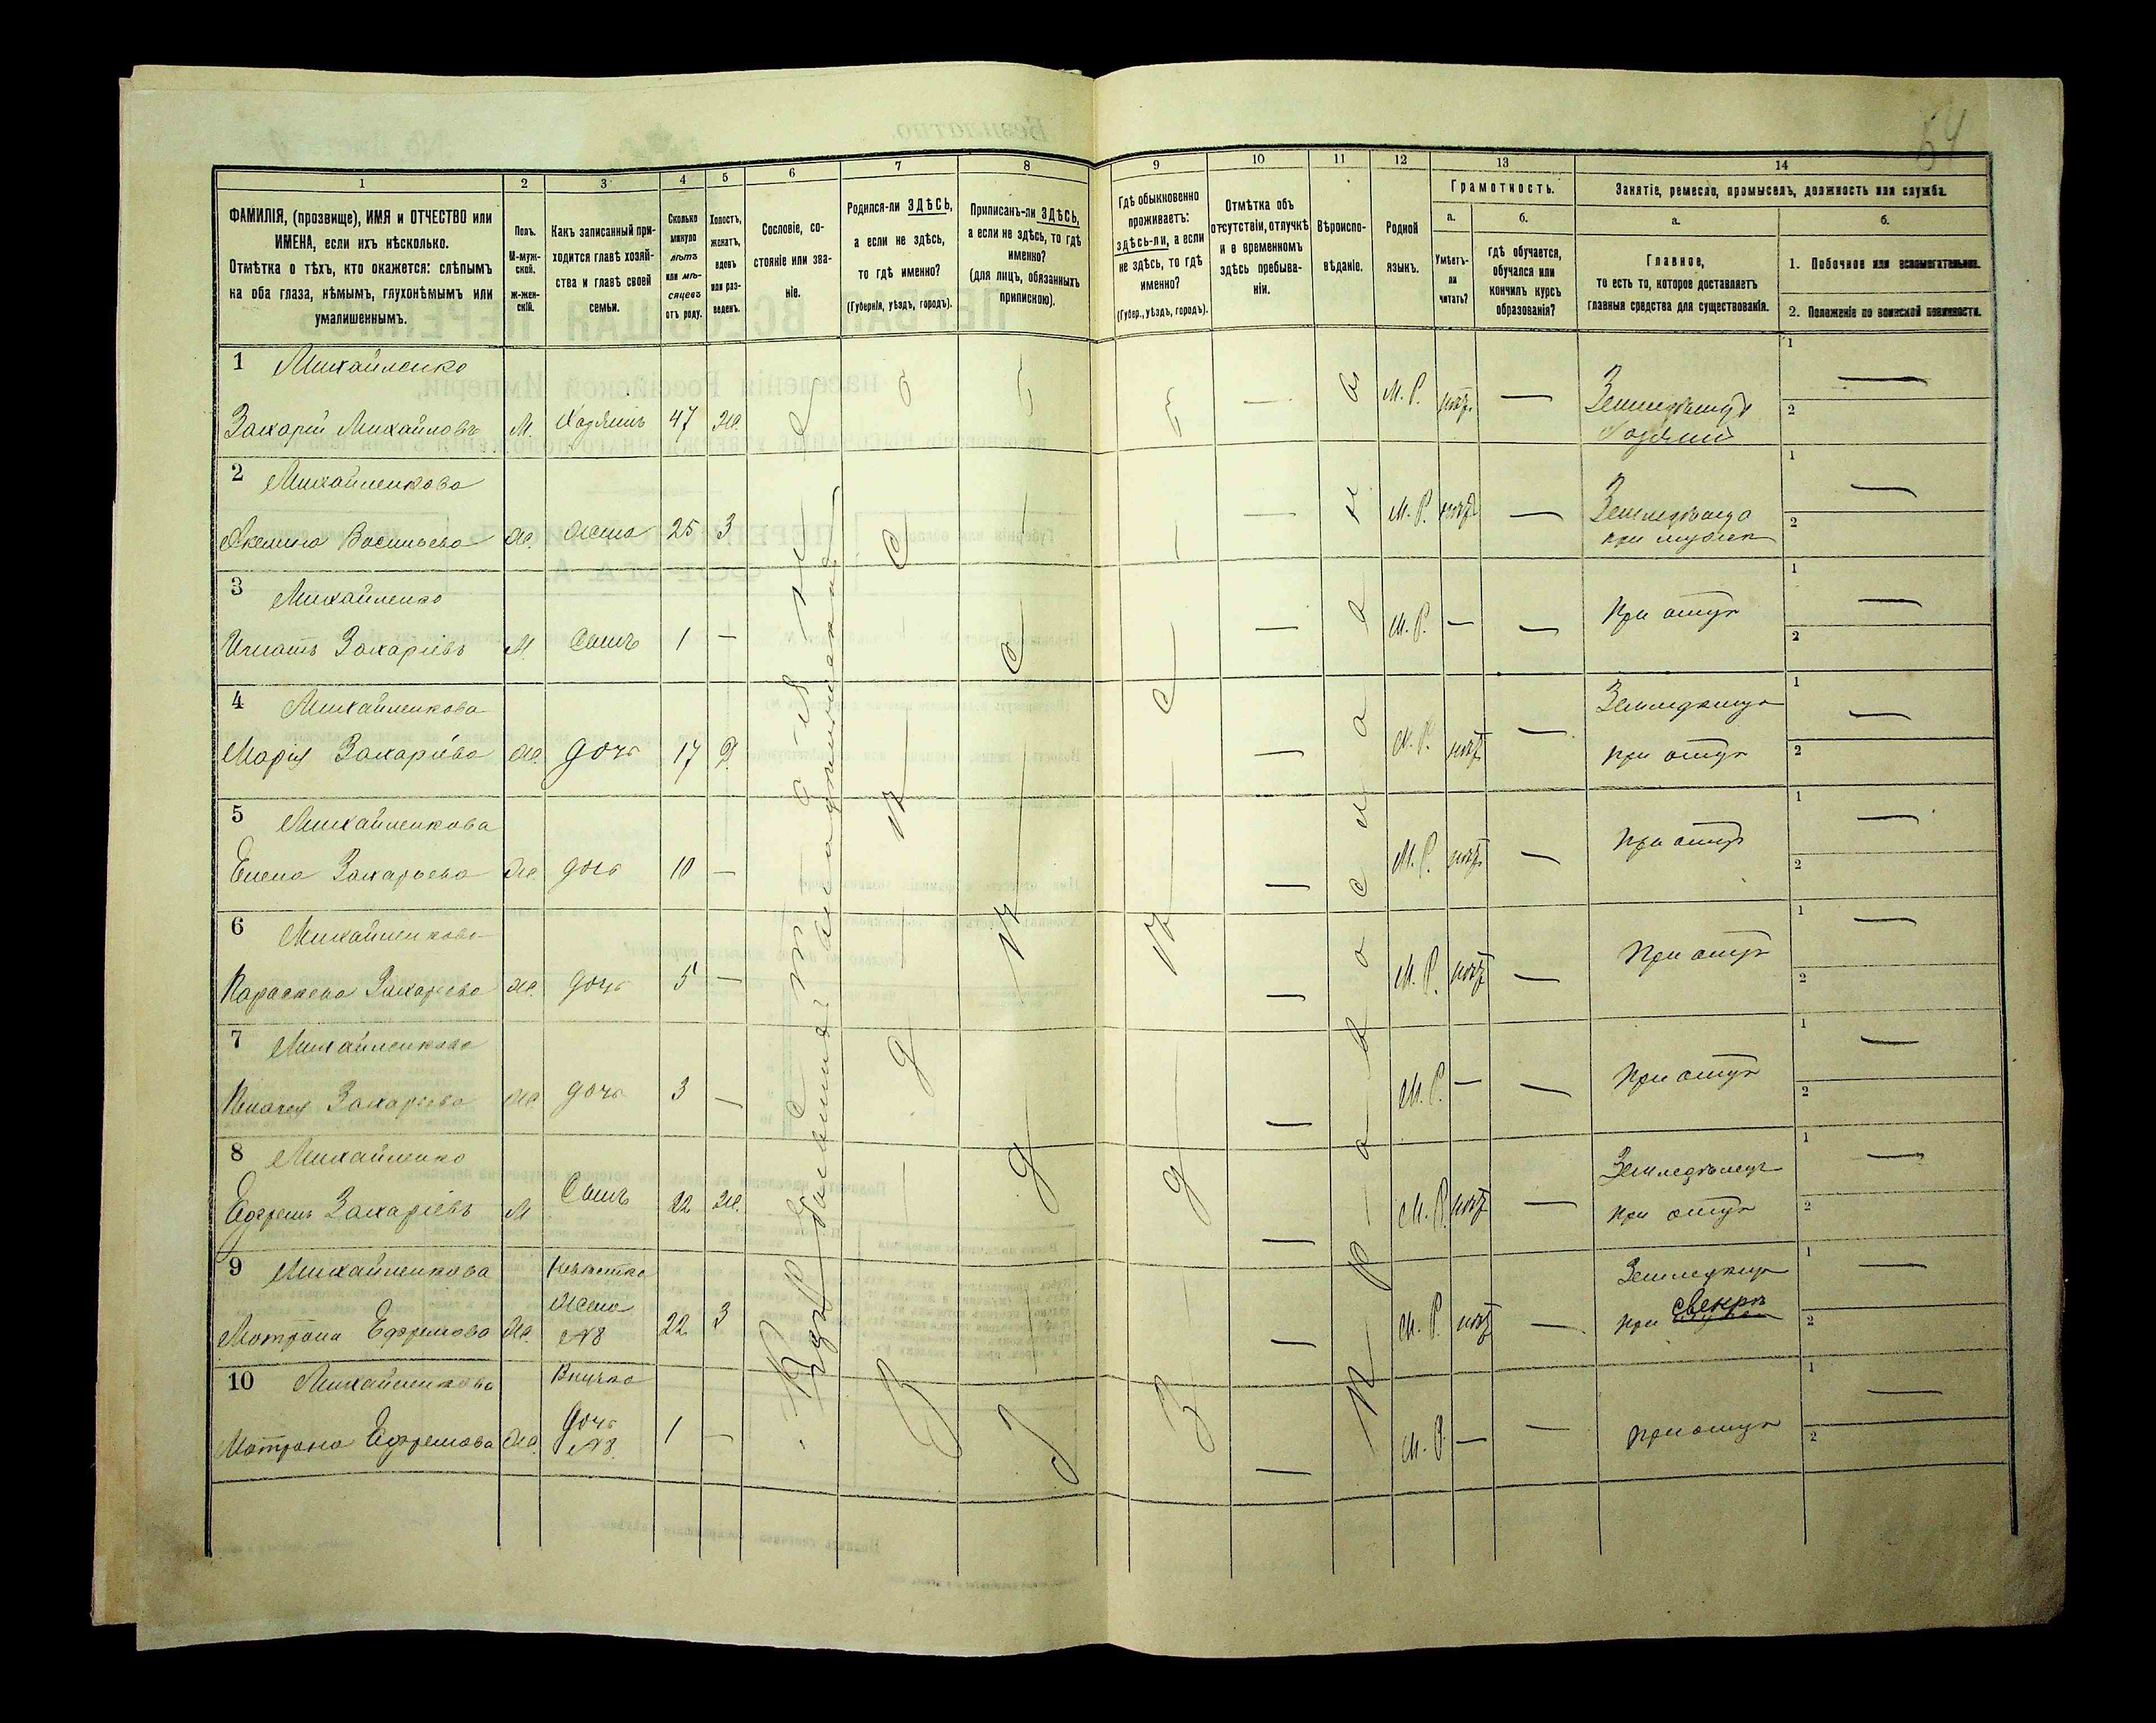 64
1 2 3 4 5 6 7 8 9 10 11 12 13 14
ФАМИЛІЯ, (прозвище), ИМЯ и ОТЧЕСТВО или
ИМЕНА, если ихъ нѣсколько.
Отмѣтка о тѣхъ, кто окажется: слѣпымъ
на оба глаза, нѣмымъ, глухонѣмымъ или
умалишеннымъ.
Полъ.
М-муж-
ской.
Ж-жен-
скій.
Какъ записанный при-
ходится главѣ хозяй-
ства и главѣ своей
семьи.
Сколько
минуло
лѣтъ
или мѣ-
сяцевъ
отъ роду.
Холостъ,
женатъ,
вдовъ
или раз-
веденъ.
Сословіе, со-
стояніе или зва-
ніе.
Родился-ли ЗДѢСЬ,
а если не здѣсь,
то гдѣ именно?
(Губернія, уѣздъ, городъ).
Приписанъ-ли ЗДѢСЬ,
а если не здѣсь, то гдѣ
именно?
(для лицъ, обязанныхъ
припискою).
Гдѣ обыкновенно
проживаетъ:
здѣсь-ли, а если
не здѣсь, то гдѣ
именно?
(Губер., уѣздъ, городъ).
Отмѣтка объ
отсутствіи, отлучкѣ
и о временномъ
здѣсь пребыва-
ніи.
Вѣроиспо-
вѣданіе.
Родной
языкъ.
Грамотность.
а.
Умѣетъ-
ли
читать?
б.
Гдѣ обучается,
обучался или
кончилъ курсъ
образованія?
Занятіе, ремесло, промыселъ, должность или служба.
а.
Главное,
то есть то, которое доставляетъ
главныя средства для существованія.
б.
1. Побочное или вспомогательное.
2. Положеніе по воинской повинности.
1 Михайленко
Захарій Михайловъ М. Хозяинъ 47 Ж. М. Р. нѣтъ — Земледѣлецъ
Хозяинъ
2 Михайленкова
Васильева Ж. Жена 25 З М. Р. нѣтъ — Земледѣлица
при мужѣ
3 Михайленко
Игнатъ Захаріевъ М. Сынъ 1 — М. Р. — — При отцѣ
4 Михайленкова
Марія Захаріева Ж. дочь 17 Д. М. Р. нѣтъ —
при отцѣ
5 Михайленкова
Елена Захарьева Ж. дочь 10 — М. Р. нѣтъ — При отцѣ
6 Михайленкова
Параскева Захарьева Ж. дочь 5 — М. Р. нѣтъ — При отцѣ
7 Михайленкова
Захарьева Ж. дочь 3 — М. Р. — — При отцѣ
8 Михайленко
Ефремъ Захаріевъ М Сынъ 22 Ж. М. Р. нѣтъ — Земледѣлецъ
при отцѣ
9 Михайленкова Невѣстка
Жена
Матрона Ефремова Ж. №8 22 З М. Р. нѣтъ —
при свекрѣ
10 Михайленкова Внучка
дочь
Матрона Ефремова Ж. №8. 1 — М. Р. — — при отцѣ
Здѣсь
Здѣсь
Здѣсь
Православная